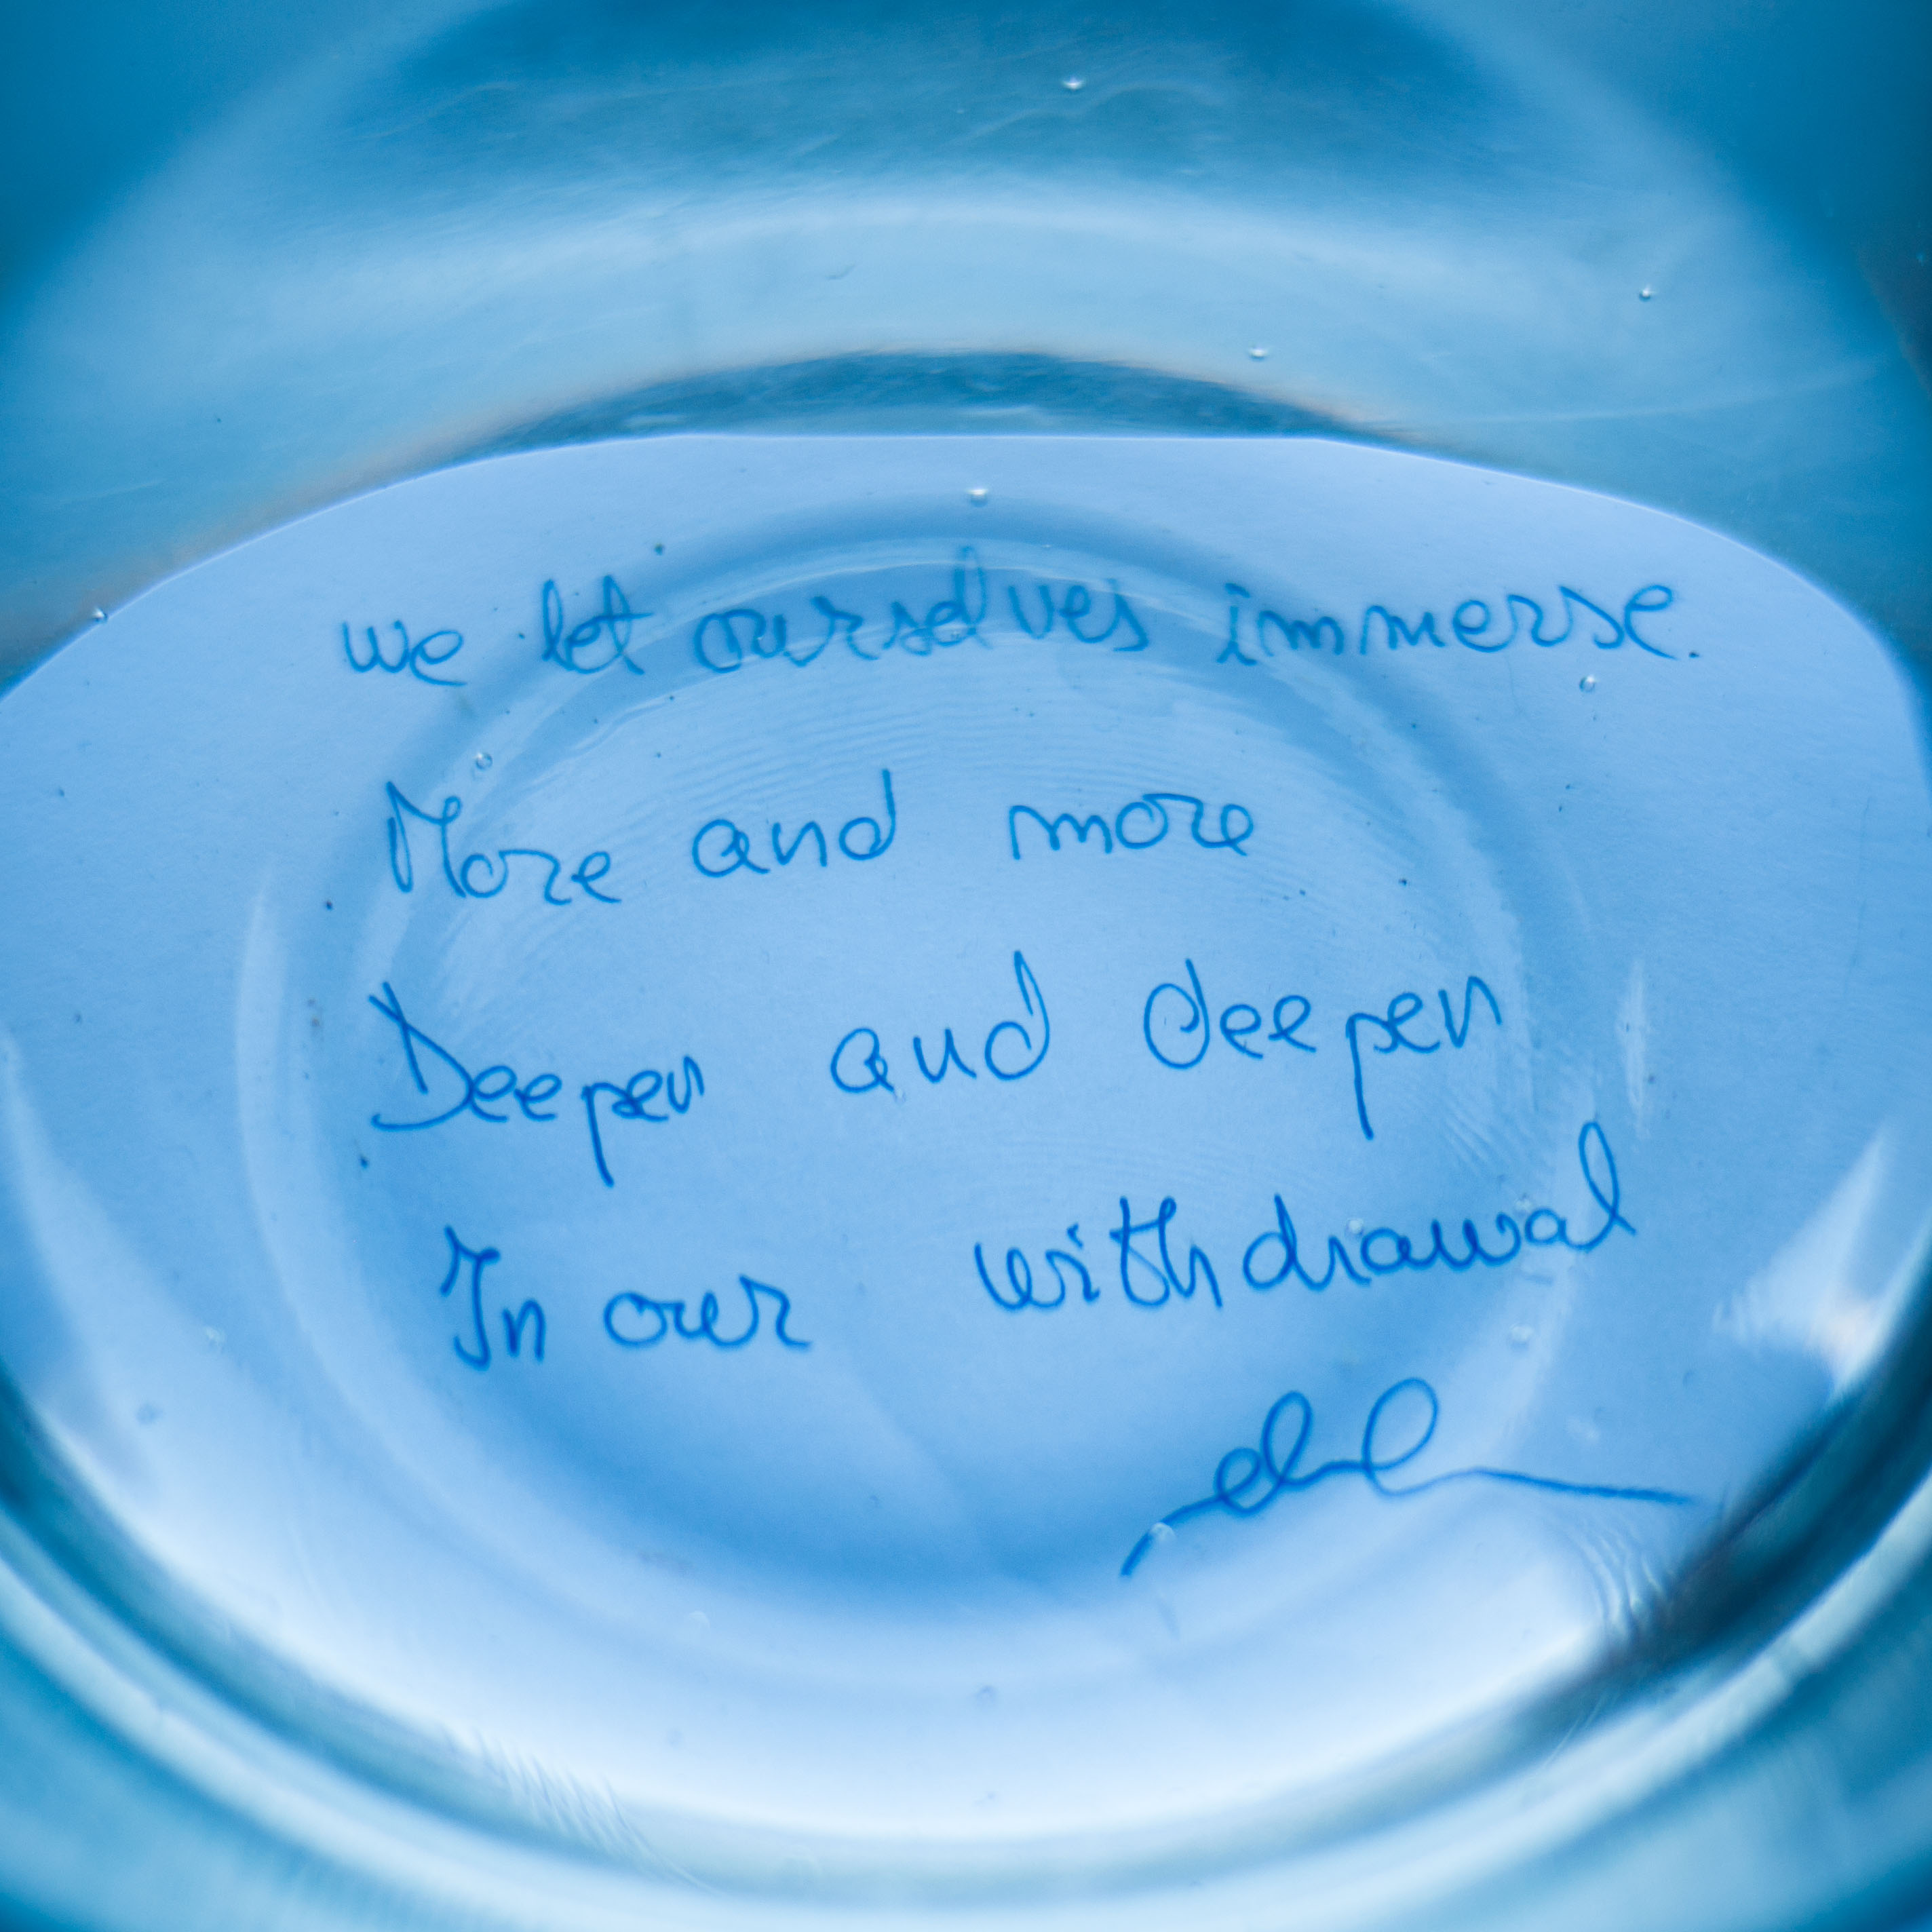 we let ourselves immerse.
More and more
Deepen and deepen
In our withdrawal